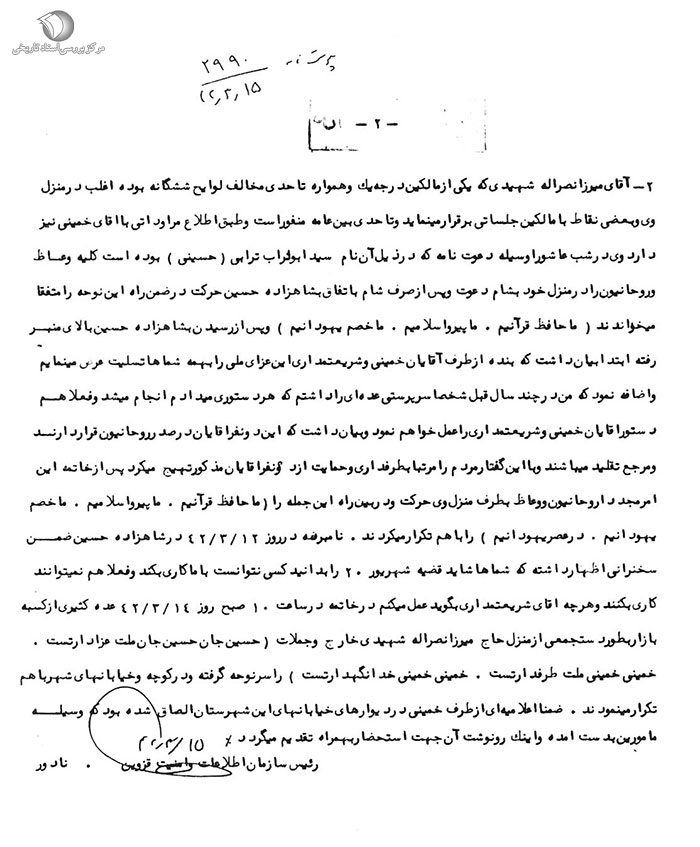 مرکز بررسی اسناد تاریخی
۲۹۹۰
۴۲٫۳٫۱۵
- ۲ -
۲ـ آقای میرزا نصراله شهیدی که یکی از مالکین درجه یک و همواره تا حدی مخالف لوایح ششگانه بوده اغلب در منزل
وی و بعضی نقاط با مالکین جلساتی برقرار مینماید و تا حدی بین عامه منفور است و طبق اطلاع مراوداتی با اقای خمینی نیز
دارد وی در شب عاشورا وسیله دعوت نامه که در ذیل آن نام سید ابوتراب ترابی ( حسینی ) بوده است کلیه وعاظ
و روحانیون را در منزل خود بشام دعوت و پس از صرف شام با تفاق بشاهزاده حسین حرکت در ضمن راه این نوحه را متفقا
میخواندند ( ما حافظ قرآنیم . ما پیرو اسلامیم . ما خصم یهودانیم ) و پس از رسیدن بشاهزاده حسین بالای منبر
رفته ابتدا بیان داشت که بنده از طرف آقایان خمینی و شریعتمداری این عزای ملی را بهمه شماها تسلیت عرض مینمایم
و اضافه نمود که من در چند سال قبل شخصا سرپرستی عده‌ای را داشتم که هر دستوری میدادم انجام میشد و فعلا هم
دستور اقایان خمینی و شریعتمداری را عمل خواهم نمود و بیان داشت که این دو نفر اقایان در صدر روحانیون قرار دارند
و مرجع تقلید میباشند و با این گفتار مردم را مرتبا بطرفداری و حمایت از دو نفر اقایان مذکور تهییج میکرد پس از خاتمه این
امر مجددا روحانیون و وعاظ بطرف منزل وی حرکت و در بین راه این جمله را ( ما حافظ قرآنیم . ما پیرو اسلامیم . ما خصم
یهودانیم . در عصر یهودانیم ) را با هم تکرار میکردند . نامبرده در روز ۴۲/۳/۱۲ در شاهزاده حسین ضمن
سخنرانی اظهار داشته که شماها شاید قضیه شهریور ۲۰ را بدانید کسی نتوانست با ما کاری بکند و فعلا هم نمیتوانند
کاری بکنند و هرچه اقای شریعتمداری بگوید عمل میکنم در خاتمه در ساعت ۱۰ صبح روز ۴۲/۳/۱۴ عده کثیری از کسبه
بازار بطور دستجمعی از منزل حاج میرزا نصراله شهیدی خارج و جملات ( حسین جان حسین جان ملت عزادارتست .
خمینی خمینی ملت طرفدارتست . خمینی خمینی خدا نگهدارتست ) را سر نوحه گرفته و در کوچه و خیابانهای شهر با هم
تکرار مینمودند . ضمنا اعلامیه‌ای از طرف خمینی در دیوارهای خیابانهای این شهرستان الصاق شده بود که وسیله
مامورین بدست امده و اینک رونوشت آن جهت استحضار بهمراه تقدیم میگردد ٪ ۴۲٫۳٫۱۵
رئیس سازمان اطلاعات و امنیت قزوین . نادور